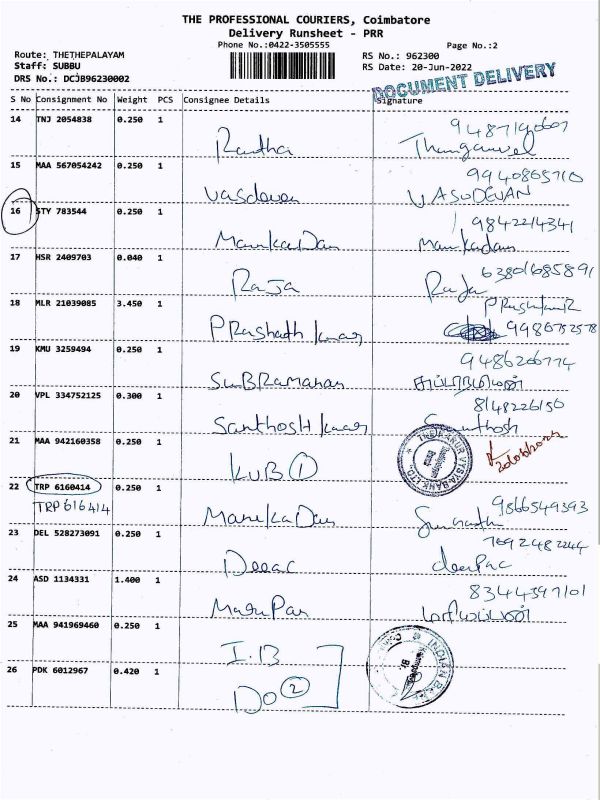 THE PROFESSIONAL COURIERS, Coimbatore
Delivery Runsheet - PRR
Phone No.:0422-3505555
Page No.:2
Route: THETHEPALAYAM
Staff: SUBBU
DRS No.: DCJB96230002
RS No.: 962300
RS Date: 20-Jun-2022
DOCUMENT DELIVERY
S No Consignment No Weight PCS Consignee Details Signature
14 TNJ 2054838 0.250 1
Thangavel
15 MAA 567054242 0.250 1 9940865710
Vasdevan VASUDEVAN
16 STY 783544 0.250 1 9842214341
ManikaDan Manikadan
17 HSR 2409703 0.040 1 63801685891
RaJa Raja
18 MLR 21039085 3.450 1
PRashath kumar 9986752578
19 KMU 3259494 0.250 1 9486206774
SuBRamanan சுப்ரமணியன்
20 VPL 334752125 0.300 1 8148226150
Santhosh kumar Santhosh
21 MAA 942160358 0.250 1
KVB 1
THE KARUR VYSYA BANK LTD.
22 TRP 6160414 0.250 1 9866549393
TRP 616414
ManikaDan
23 DEL 528273091 0.250 1 7692482244
Deeac deepac
24 ASD 1134331 1.400 1 8344397101
MariPan மாரியப்பன்
25 MAA 941969460 0.250 1
I.B
INDIAN BANK
26 PDK 6012967 0.420 1
Do 2